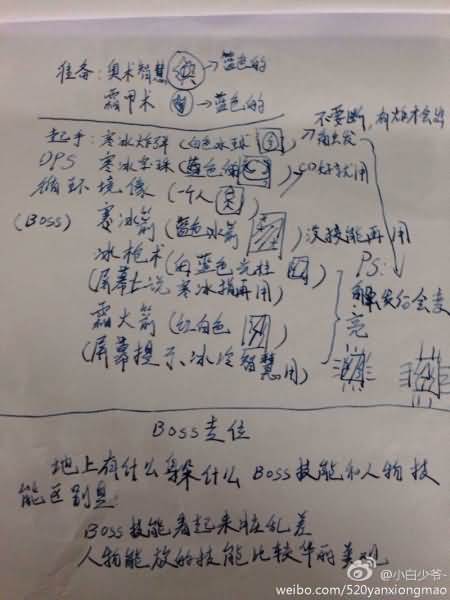 准备：奥术智慧（奥）→蓝色的
霜甲术 →蓝色的
不要断，有炸才会出
起手：寒冰炸弹（白色冰球）→ 触发
DPS 寒冰宝珠（蓝色的球）CD好就用
循环 镜像（一个人）
(BOSS) 寒冰箭（蓝色冰箭）没技能再用
冰枪术（向蓝色光柱）
PS:
（屏幕上说寒冰指再用）
如果发作会变亮
霜火箭（红白色）
（屏幕提示冰冷智慧用）
Boss走位
地上有什么躲什么 Boss技能和人物技
能区别是
Boss技能看起来脏乱差
人物能放的技能比较华丽美观
@小白少爷-
weibo.com/520yanxiongmao